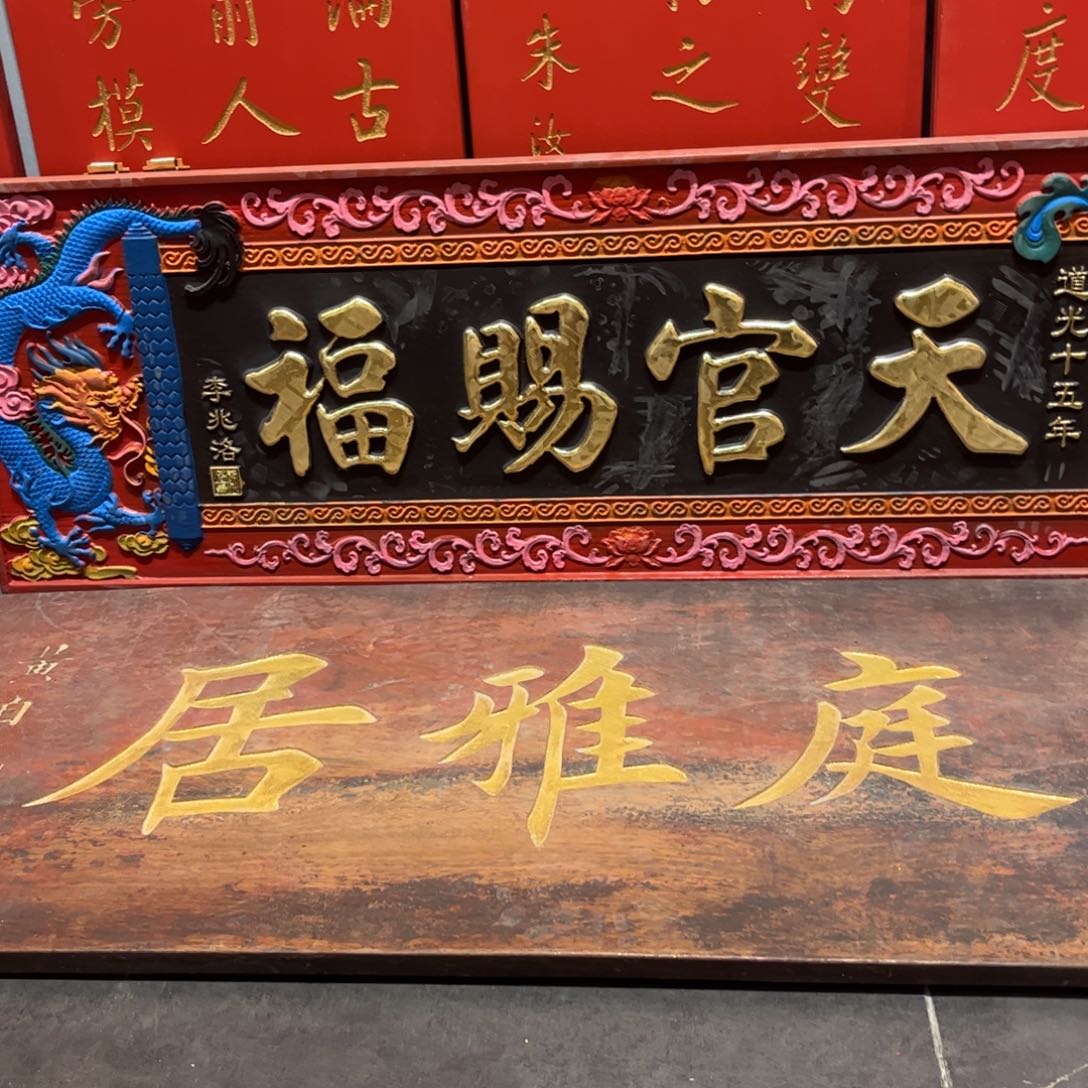 度
變
之
朱汝
古
前人
模
道光十五年
天官賜福
李兆洛
庭雅居